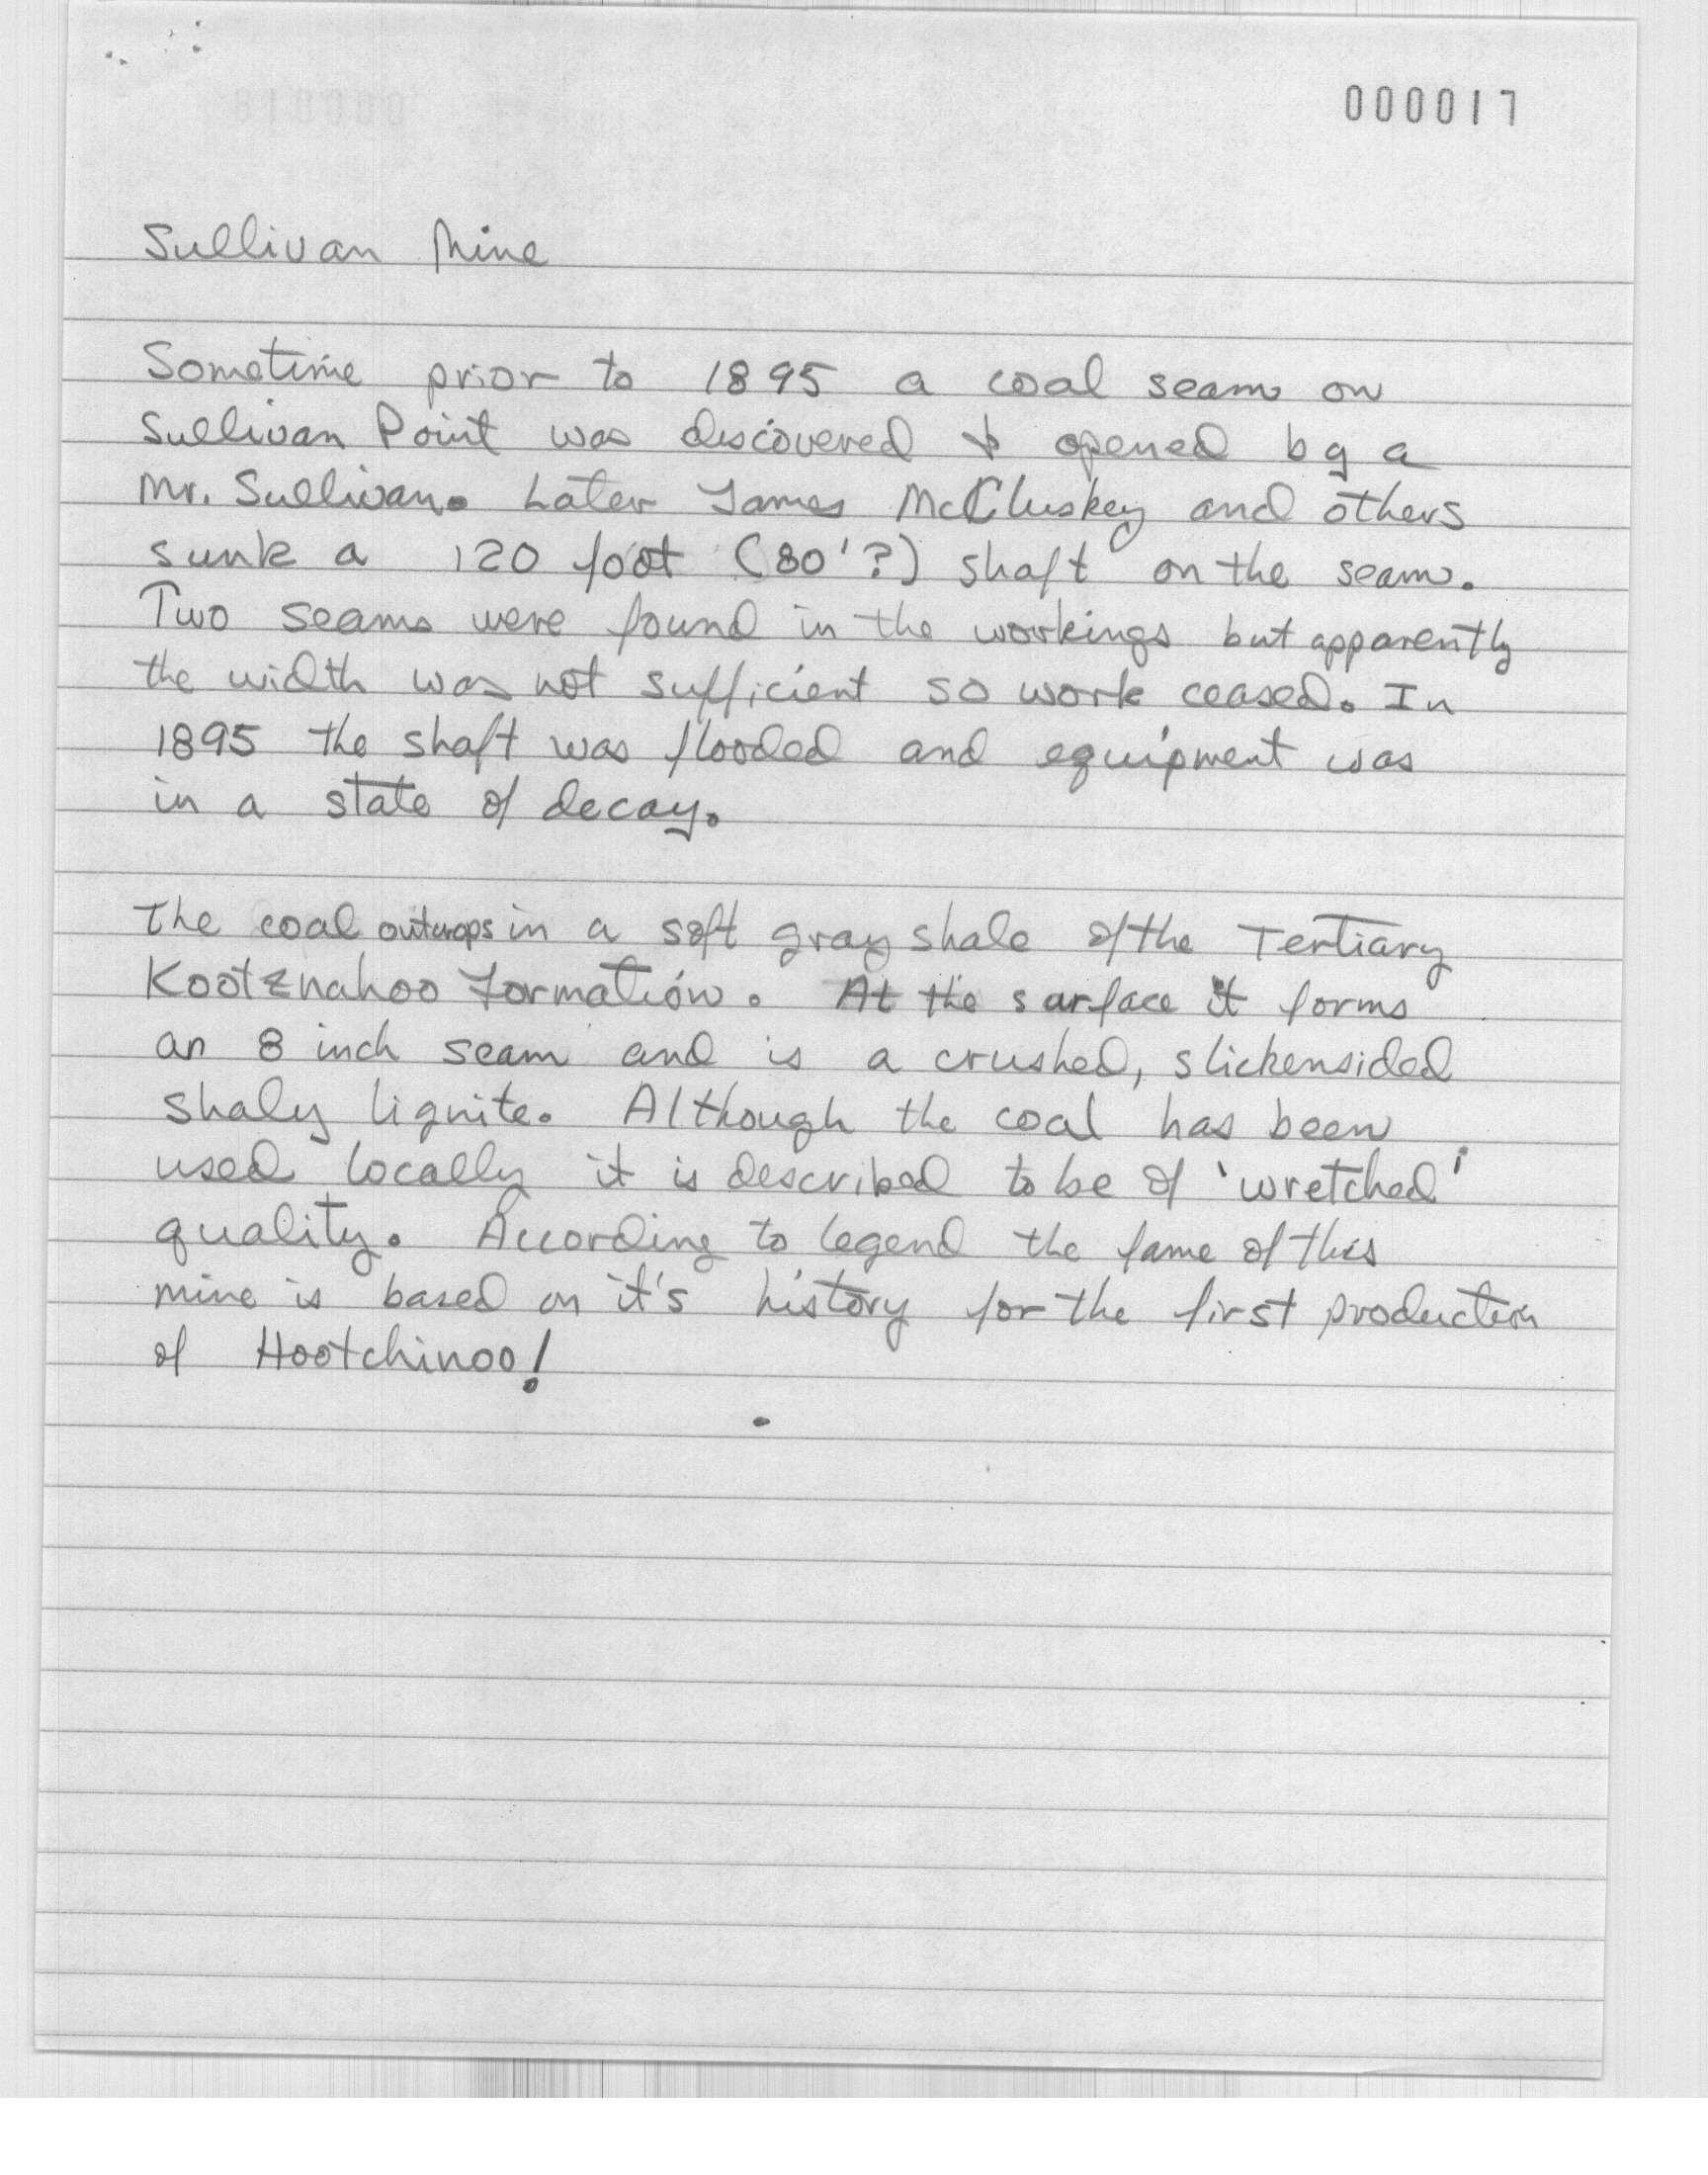 000017
Sullivan Mine
Sometime prior to 1895 a coal seam on
Sullivan Point was discovered & opened by a
Mr. Sullivan. Later James McCluskey and others
sunk a 120 foot (80'?) shaft on the seam.
Two seams were found in the workings but apparently
the width was not sufficient so work ceased. In
1895 the shaft was flooded and equipment was
in a state of decay.
The coal outcrops in a soft gray shale of the Tertiary
Kootznahoo Formation. At the surface it forms
an 8 inch seam and is a crushed, slickensided
shaly lignite. Although the coal has been
used locally it is described to be of 'wretched'
quality. According to legend the fame of this
mine is based on it's history for the first production
of Hootchinoo!